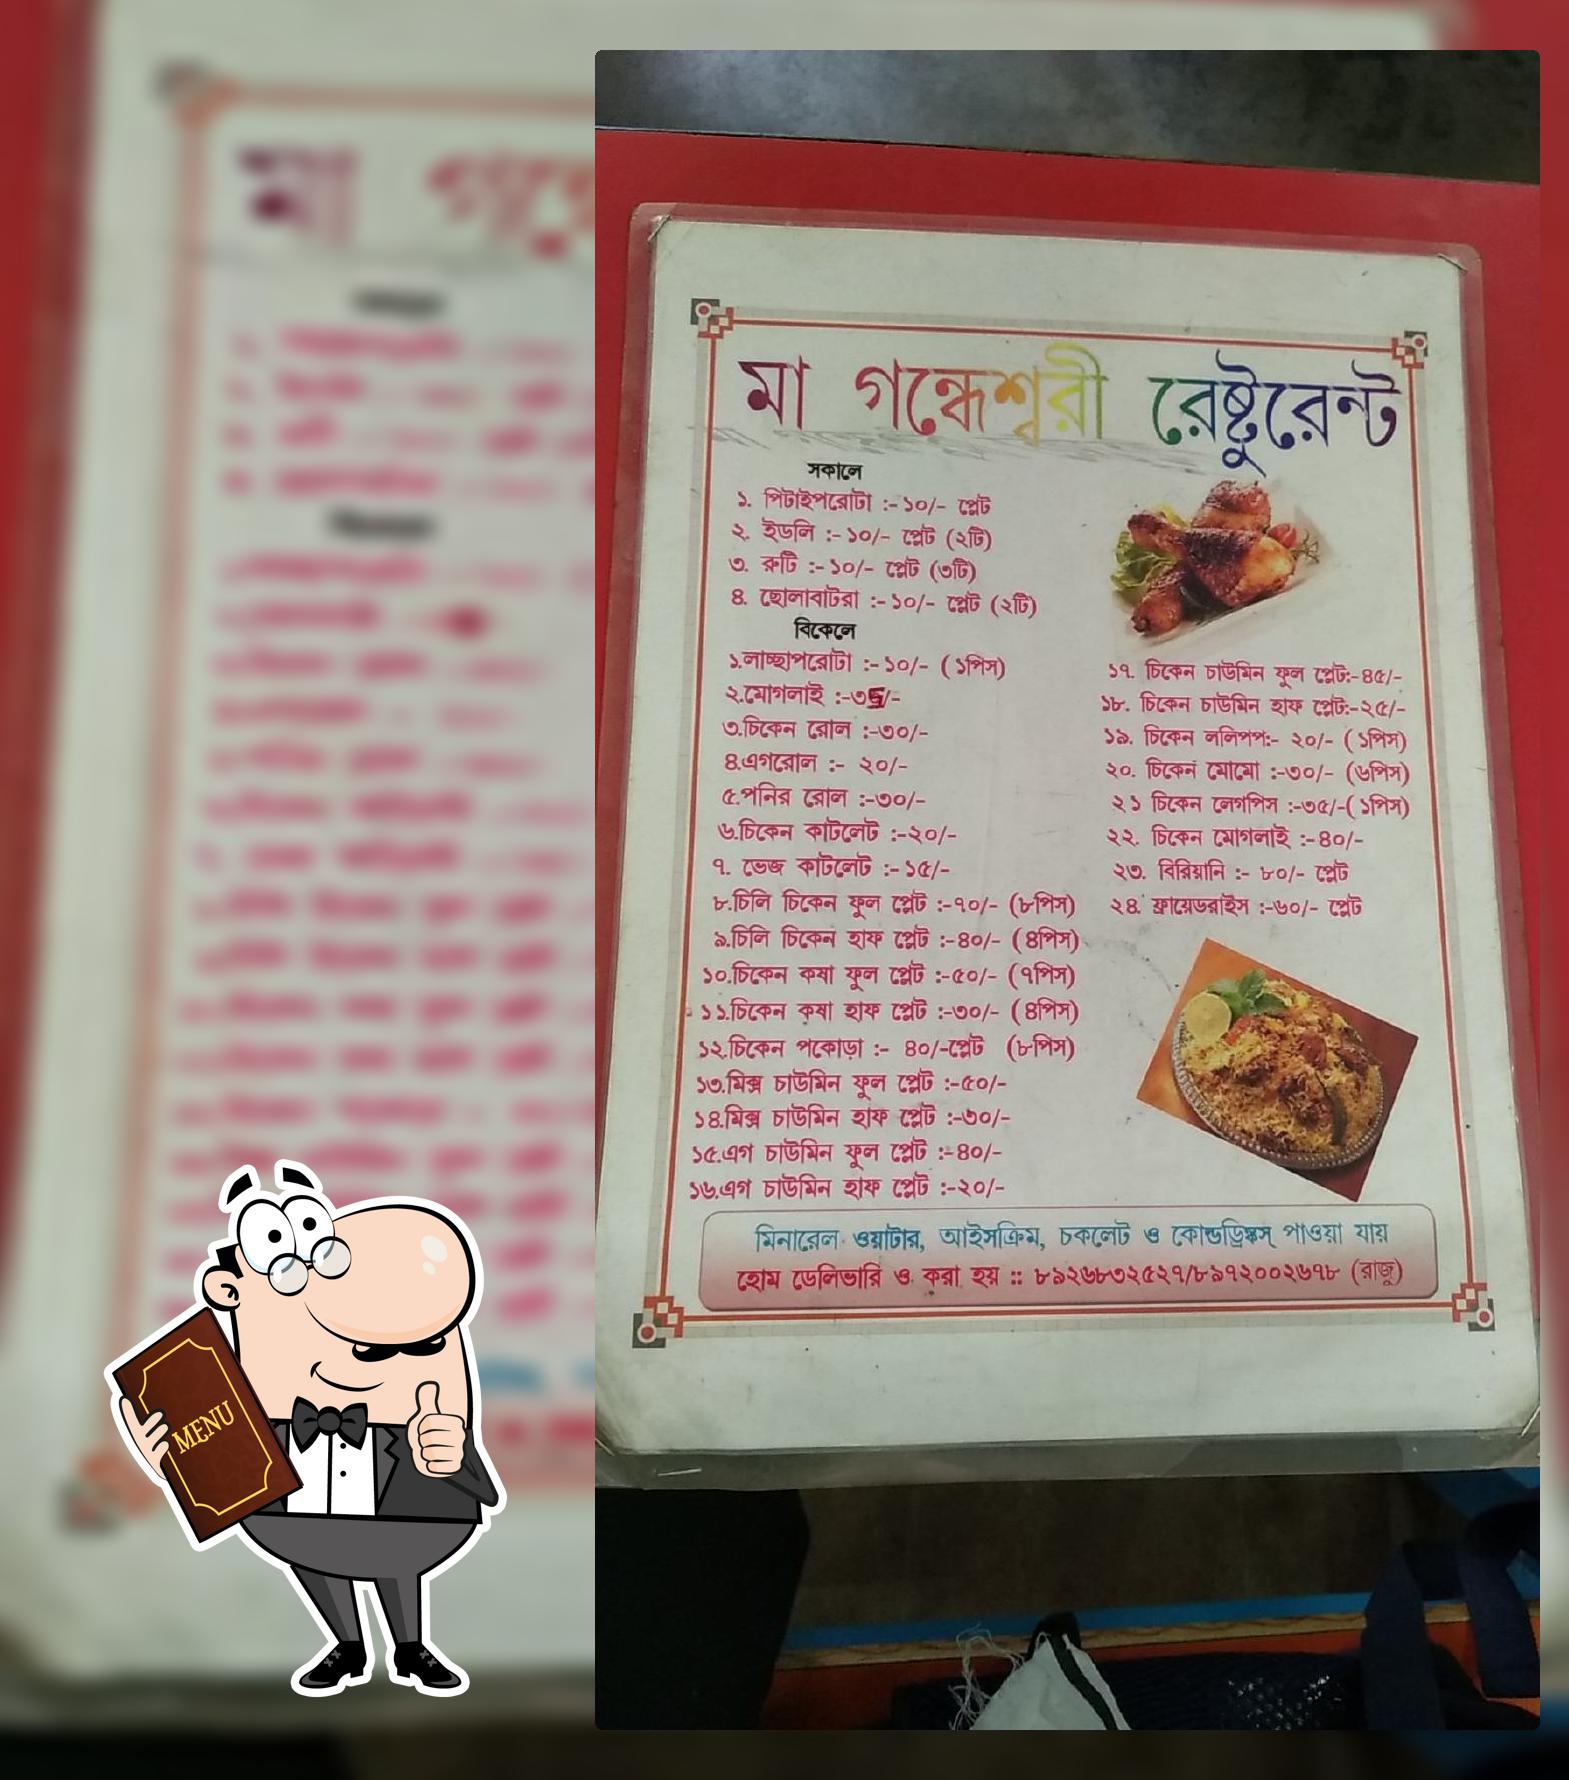 মা গন্ধেশ্বরী রেষ্টুরেন্ট
সকালে
১. পিটাইপরোটা :-১০/- প্লেট
২. ইডলি :-১০/- প্লেট (২টি)
৩. রুটি :-১০/- প্লেট (৩টি)
৪. ছোলাবাটরা :-১০/- প্লেট (২টি)
বিকেলে
১.লাচ্ছাপরোটা :-১০/- (১পিস)
২.মোগলাই :-৩৫/-
৩.চিকেন রোল :-৩০/-
৪.এগরোল :- ২০/-
৫.পনির রোল :-৩০/-
৬.চিকেন কাটলেট :-২০/-
৭. ভেজ কাটলেট :-১৫/-
৮.চিলি চিকেন ফুল প্লেট :-৭০/- (৮পিস)
৯.চিলি চিকেন হাফ প্লেট :-৪০/- (৪পিস)
১০.চিকেন কষা ফুল প্লেট :-৫০/- (৭পিস)
১১.চিকেন কষা হাফ প্লেট :-৩০/- (৪পিস)
১২.চিকেন পকোড়া :- ৪০/-প্লেট (৮পিস)
১৩.মিক্স চাউমিন ফুল প্লেট :-৫০/-
১৪.মিক্স চাউমিন হাফ প্লেট :-৩০/-
১৫.এগ চাউমিন ফুল প্লেট :-৪০/-
১৬.এগ চাউমিন হাফ প্লেট :-২০/-
১৭. চিকেন চাউমিন ফুল প্লেট:-৪৫/-
১৮. চিকেন চাউমিন হাফ প্লেট:-২৫/-
১৯. চিকেন ললিপপ:- ২০/- (১পিস)
২০. চিকেন মোমো :-৩০/- (৬পিস)
২১ চিকেন লেগপিস :-৩৫/-(১পিস)
২২. চিকেন মোগলাই :-৪০/-
২৩. বিরিয়ানি :- ৮০/- প্লেট
২৪. ফ্রায়েডরাইস :-৬০/- প্লেট
মিনারেল ওয়াটার, আইসক্রিম, চকলেট ও কোল্ডড্রিঙ্কস্ পাওয়া যায়
হোম ডেলিভারি ও করা হয় :: ৮৯২৬৮৩২৫২৭/৮৯৭২০০২৬৭৮ (রাজু)
MENU